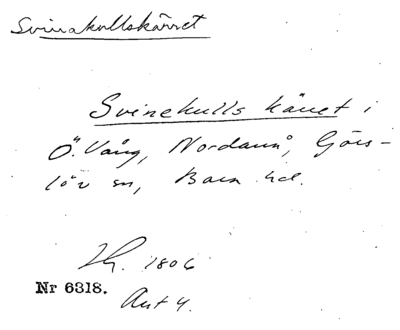 Svinakullskärret
Svinekulls käret i
Ö. Vång, Nordanå, Görs-
löv sn, Bara hd.
1806
Nr 6318.
Akt 4.